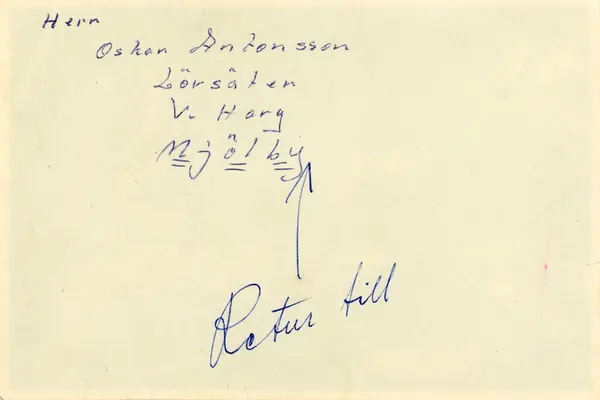 Herr
Oskar Antonsson
Lörsäter
V. Harg
Mjölby
Retur till